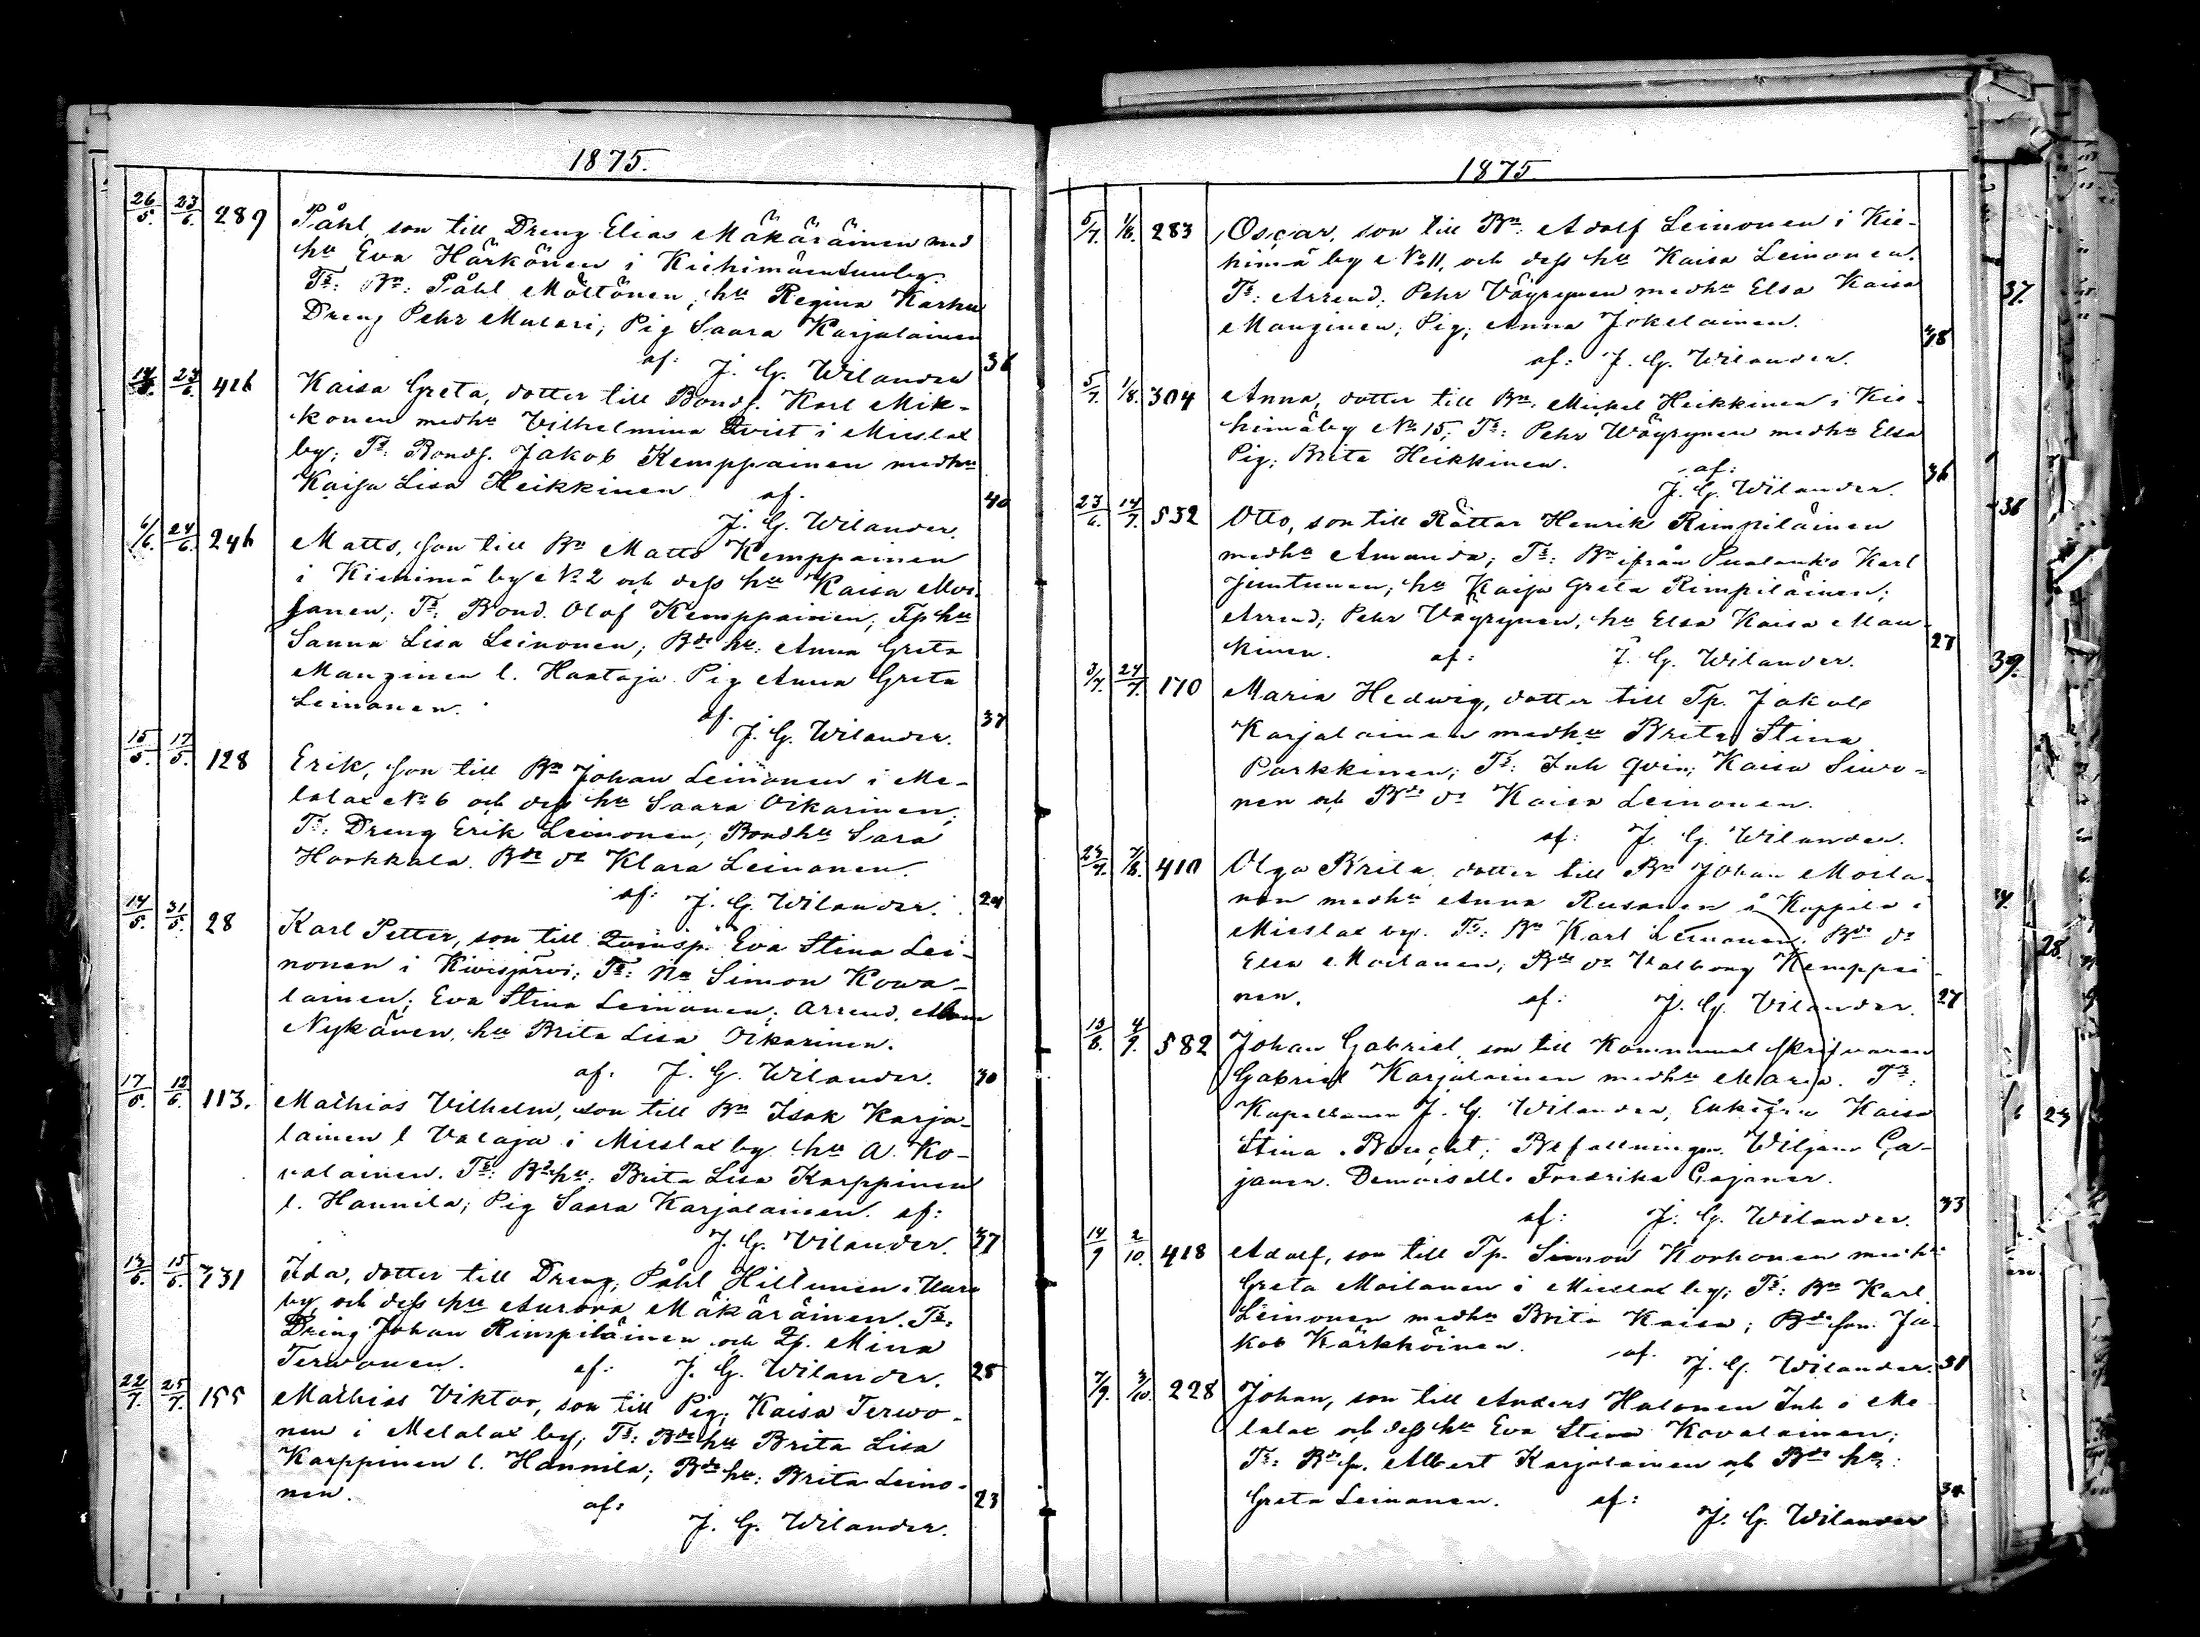 1875.
26/5. 23/6. 289 Påhl, son till Dreng Elias Mäkäräinen med
hu Eva Härkönen i Kiehimäensuuby
Ts: Bn: Påhl Möttönen, hu Regina Karhu
Dreng Pehr Mulari; Pig Saara Karjalainen
af: J. G. Wilander 36
23/6. 416 Kaisa Greta, dotter till Bondf. Karl Mik-
konen medhu Vilhelmina Qvist i Mieslax
by; Ts: Bondf. Jakob Kemppainen medhu
Kaisa Lisa Heikkinen af. 40
J. G. Wilander.
6/6. 24/6. 246 Matts, son till Bn Matts Kemppainen
i Kiehimä by No 2 och dess hu Kaisa Moi
lanen; Ts: Bond. Olof Kemppainen; Tp hu
Sanna Lisa Leinonen; Bde hu: Anna Greta
Manginen l. Haataja Pig Anna Greta
Leinonen. af. 37
J. G. Wilander.
15/5. 17/5. 128 Erik, son till Bn Johan Leinonen i Me-
lalax No 6 och dess hu Saara Oikarinen;
Ts: Dreng Erik Leinonen; Bondhu Sara
Horkkala. Bde dr Klara Leinonen.
af: J. G. Wilander. 24
14/5. 31/5. 28 Karl Petter, son till Qvinsp. Eva Stina Lei-
nonen i Kivisjärvi; Ts: Nb Simon Kowa-
lainen; Eva Stina Leinonen; Arrend.
Nykänen, hu Brita Lisa Oikarinen.
af. J. G. Wilander. 30
17/5. 12/6. 113. Mathias Vilhelm, son till Bn Isak Karja-
lainen l Valaja i Mieslax by hu A. Ko-
valainen. Ts: Bde hu: Brita Lisa Karppinen
l. Hannila; Pig Saara Karjalainen. af:
J. G. Wilander. 37
13/6. 15/6. 731 Ida, dotter till Dreng; Påhl Hiltunen i Uura
by, och dess hu Aurora Mäkäräinen. Ts:
Dreng Johan Rimpiläinen och Qp. Mina
Terwonen. af: J. G. Wilander. 25
22/7. 25/7. 155 Mathias Viktor, son till Pig; Kaisa Terwo-
nen i Melalax by; Ts: Bde hu Brita Lisa
Karppinen l. Hannila; Bde hu: Brita Leino-
nen. af: 23
J. G. Wilander.
1875
5/7. 1/8. 283 Oscar, son till Bn: Adolf Leinonen i Kie-
himä by No 11, och dess hu Kaisa Leinonen.
Ts: Arrend. Pehr Väyrynen medhu Elsa Kaisa
Manginen; Pig; Anna Jokelainen.
af: J. G. Wilander. 28
5/7. 1/8. 304 Anna, dotter till Bn. Mickel Heikkinen i Kie-
himäby No 15; Ts: Pehr Wäyrynen medhu Elsa
Pig; Brita Heikkinen. af: 36
J. G. Wilander.
23/6. 14/7. 532 Otto, son till Rättar Henrik Rimpiläinen
medhu Amanda; Ts: Bn ifrån Puolanko Karl
Juntunen, hu Kaisa Greta Rimpiläinen;
Arrend; Pehr Väyrynen, hu Elsa Kaisa Man
kinen. af: J. G. Wilander. 27
3/7. 24/7. 170 Maria Hedwig, dotter till Tp. Jakob
Karjalainen medhu Brita Stina
Parkkinen; Ts: Inh qvin; Kaisa Siwo-
nen och Bde dr Kaisa Leinonen.
af: J. G. Wilander.
24/7. 7/8. 410 Olga Brita, dotter till Bn Johan Moila-
nen medhu Anna Rusanen å Koppila i
Mieslax by. Ts: Bn Karl Leinonen. Bde dr
Elsa Moilanen; Bde dr Valborg Kemppai-
nen. af: J. G. Vilander. 27
13/8. 4/9. 582 Johan Gabriel, son till Kommunal skrifvaren
Gabriel Karjalainen medhu Maria. Ts:
Kapellanen J. G. Wilander, Enkefru Kaisa
Stina Boucht; Befallningsm. Wiljam Ca-
janen. Demoiselle Fredrika Cajaner.
af: J. G. Wilander. 33
14/9 2/10. 418 Adolf, son till Tp. Simon Korhonen medhu
Greta Moilanen i Mieslax by; Ts: Bn Karl
Leinonen medhu Brita Kaisa; Bde son Ja-
kob Kärkkäinen. af. J. G. Wilander. 31
7/9. 3/10. 228 Johan, son till Anders Halonen Inh i Me
lalax och dess hu Eva Stina Kovalainen;
Ts: Bde s. Albert Karjalainen och Bde hu:
Greta Leinonen. af: 34
J. G. Wilander
37.
38
39.
28.